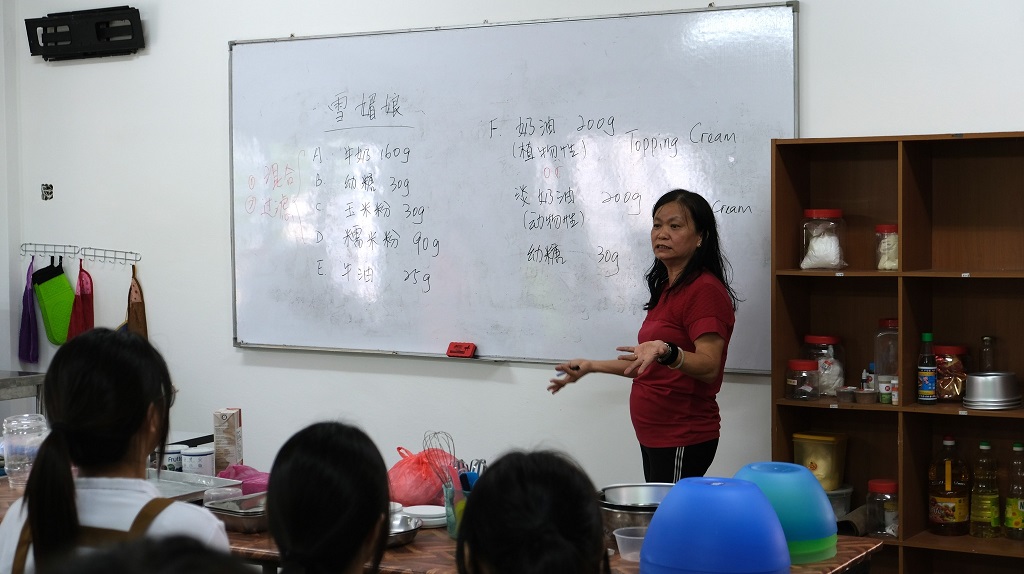 雪媚娘
A. 牛奶 160g
① 混合 B. 幼糖 30g
② 过滤 C. 玉米粉 30g
D. 糯米粉 90g
E. 牛油 25g
F. 奶油 200g
(植物性) Topping Cream
or
淡奶油 200g
(动物性) Cream
幼糖 30g